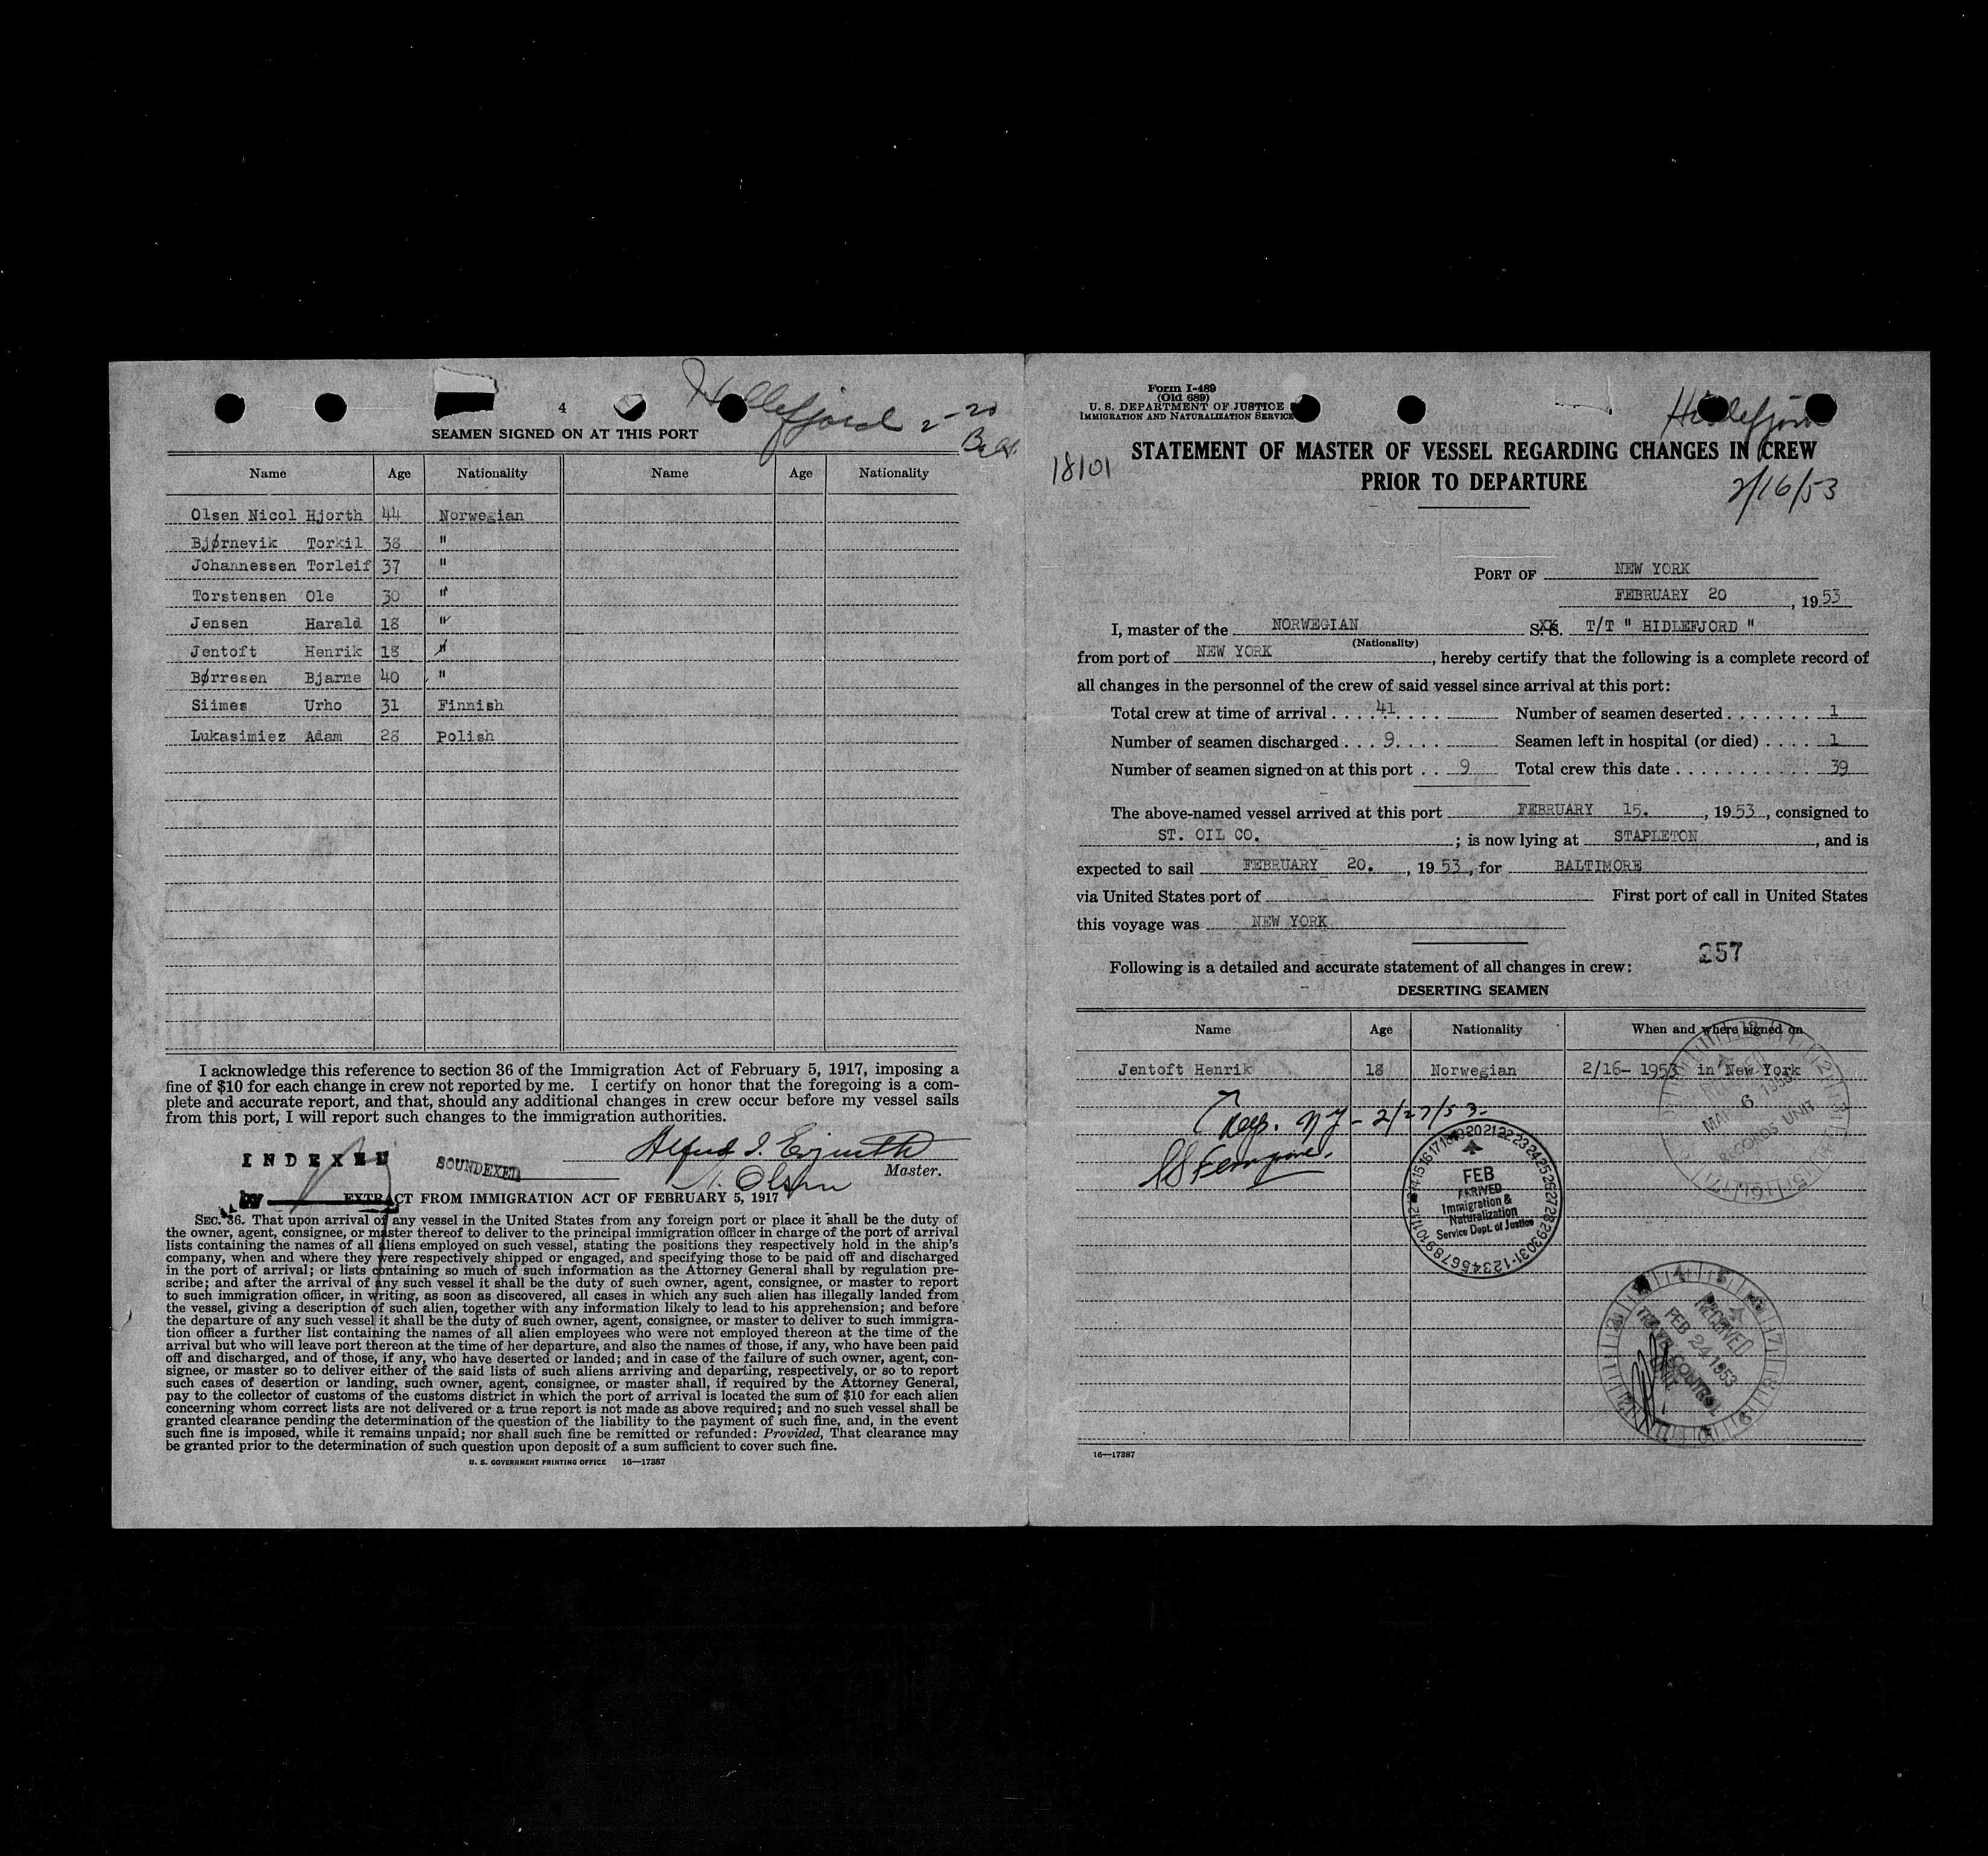 Hidlefjord 2-20
Balt.
4
SEAMEN SIGNED ON AT THIS PORT
Name Age Nationality Name Age Nationality
Olsen Nicol Hjorth 44 Norwegian
Bjørnevik Torkil 38 "
Johannessen Torleif 37 "
Torstensen Ole 30 "
Jensen Harald 18 "
Jentoft Henrik 18 "
Børresen Bjarne 40 "
Siimes Urho 31 Finnish
Lukasimiez Adam 28 Polish
I acknowledge this reference to section 36 of the Immigration Act of February 5, 1917, imposing a
fine of $10 for each change in crew not reported by me. I certify on honor that the foregoing is a com-
plete and accurate report, and that, should any additional changes in crew occur before my vessel sails
from this port, I will report such changes to the immigration authorities.
INDEXED SOUNDEXED
Master.
Olsen
by
EXTRACT FROM IMMIGRATION ACT OF FEBRUARY 5, 1917
SEC. 36. That upon arrival of any vessel in the United States from any foreign port or place it shall be the duty of
the owner, agent, consignee, or master thereof to deliver to the principal immigration officer in charge of the port of arrival
lists containing the names of all aliens employed on such vessel, stating the positions they respectively hold in the ship's
company, when and where they were respectively shipped or engaged, and specifying those to be paid off and discharged
in the port of arrival; or lists containing so much of such information as the Attorney General shall by regulation pre-
scribe; and after the arrival of any such vessel it shall be the duty of such owner, agent, consignee, or master to report
to such immigration officer, in writing, as soon as discovered, all cases in which any such alien has illegally landed from
the vessel, giving a description of such alien, together with any information likely to lead to his apprehension; and before
the departure of any such vessel it shall be the duty of such owner, agent, consignee, or master to deliver to such immigra-
tion officer a further list containing the names of all alien employees who were not employed thereon at the time of the
arrival but who will leave port thereon at the time of her departure, and also the names of those, if any, who have been paid
off and discharged, and of those, if any, who have deserted or landed; and in case of the failure of such owner, agent, con-
signee, or master so to deliver either of the said lists of such aliens arriving and departing, respectively, or so to report
such cases of desertion or landing, such owner, agent, consignee, or master shall, if required by the Attorney General,
pay to the collector of customs of the customs district in which the port of arrival is located the sum of $10 for each alien
concerning whom correct lists are not delivered or a true report is not made as above required; and no such vessel shall be
granted clearance pending the determination of the question of the liability to the payment of such fine, and, in the event
such fine is imposed, while it remains unpaid; nor shall such fine be remitted or refunded: Provided, That clearance may
be granted prior to the determination of such question upon deposit of a sum sufficient to cover such fine.
U. S. GOVERNMENT PRINTING OFFICE 16—17387
Form I-489
(Old 689)
U. S. DEPARTMENT OF JUSTICE
IMMIGRATION AND NATURALIZATION SERVICE
Hidlefjord
18101
STATEMENT OF MASTER OF VESSEL REGARDING CHANGES IN CREW
PRIOR TO DEPARTURE
2/16/53
PORT OF NEW YORK
FEBRUARY 20, 1953
I, master of the NORWEGIAN S.S. T/T " HIDLEFJORD "
(Nationality)
from port of NEW YORK, hereby certify that the following is a complete record of
all changes in the personnel of the crew of said vessel since arrival at this port:
Total crew at time of arrival .... 41 .... Number of seamen deserted ....... 1
Number of seamen discharged ... 9 .... Seamen left in hospital (or died) .... 1
Number of seamen signed on at this port .. 9 Total crew this date ............ 39
The above-named vessel arrived at this port FEBRUARY 15., 1953, consigned to
ST. OIL CO.; is now lying at STAPLETON, and is
expected to sail FEBRUARY 20., 1953, for BALTIMORE
via United States port of First port of call in United States
this voyage was NEW YORK
257
Following is a detailed and accurate statement of all changes in crew:
DESERTING SEAMEN
Name Age Nationality When and where signed on
Jentoft Henrik 18 Norwegian 2/16- 1953 in New York
RECEIVED
MAR 6 1953
RECORDS UNIT
Dep. NY - 2/27/53-
FEB
ARRIVED
Immigration &
Naturalization
Service Dept. of Justice
RECEIVED
FEB 24 1953
TRAVEL CONTROL
UNIT
16—17387